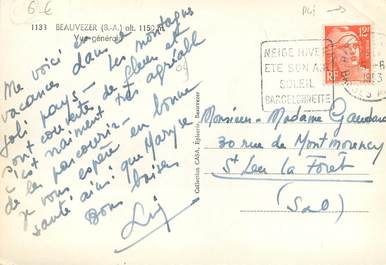 6€
1133 BEAUVEZER (B.-A.) alt. 1150 m.
Vue générale
Me voici en
vacances dans ce
joli pays - les montagnes
sont couvertes de fleurs et
c'est vraiment très agréable
de les parcourir.
Je vous espère en bonne
santé ainsi que Maryse
Bons baisers
Collection CAIA, Epicerie, Beauvezer
NEIGE HIVER
ETE SON AIR
SOLEIL
BARCELONNETTE
12F
RF
1953
Monsieur - Madame
30 rue de Montmorency
St Leu la Forêt
(S&O)